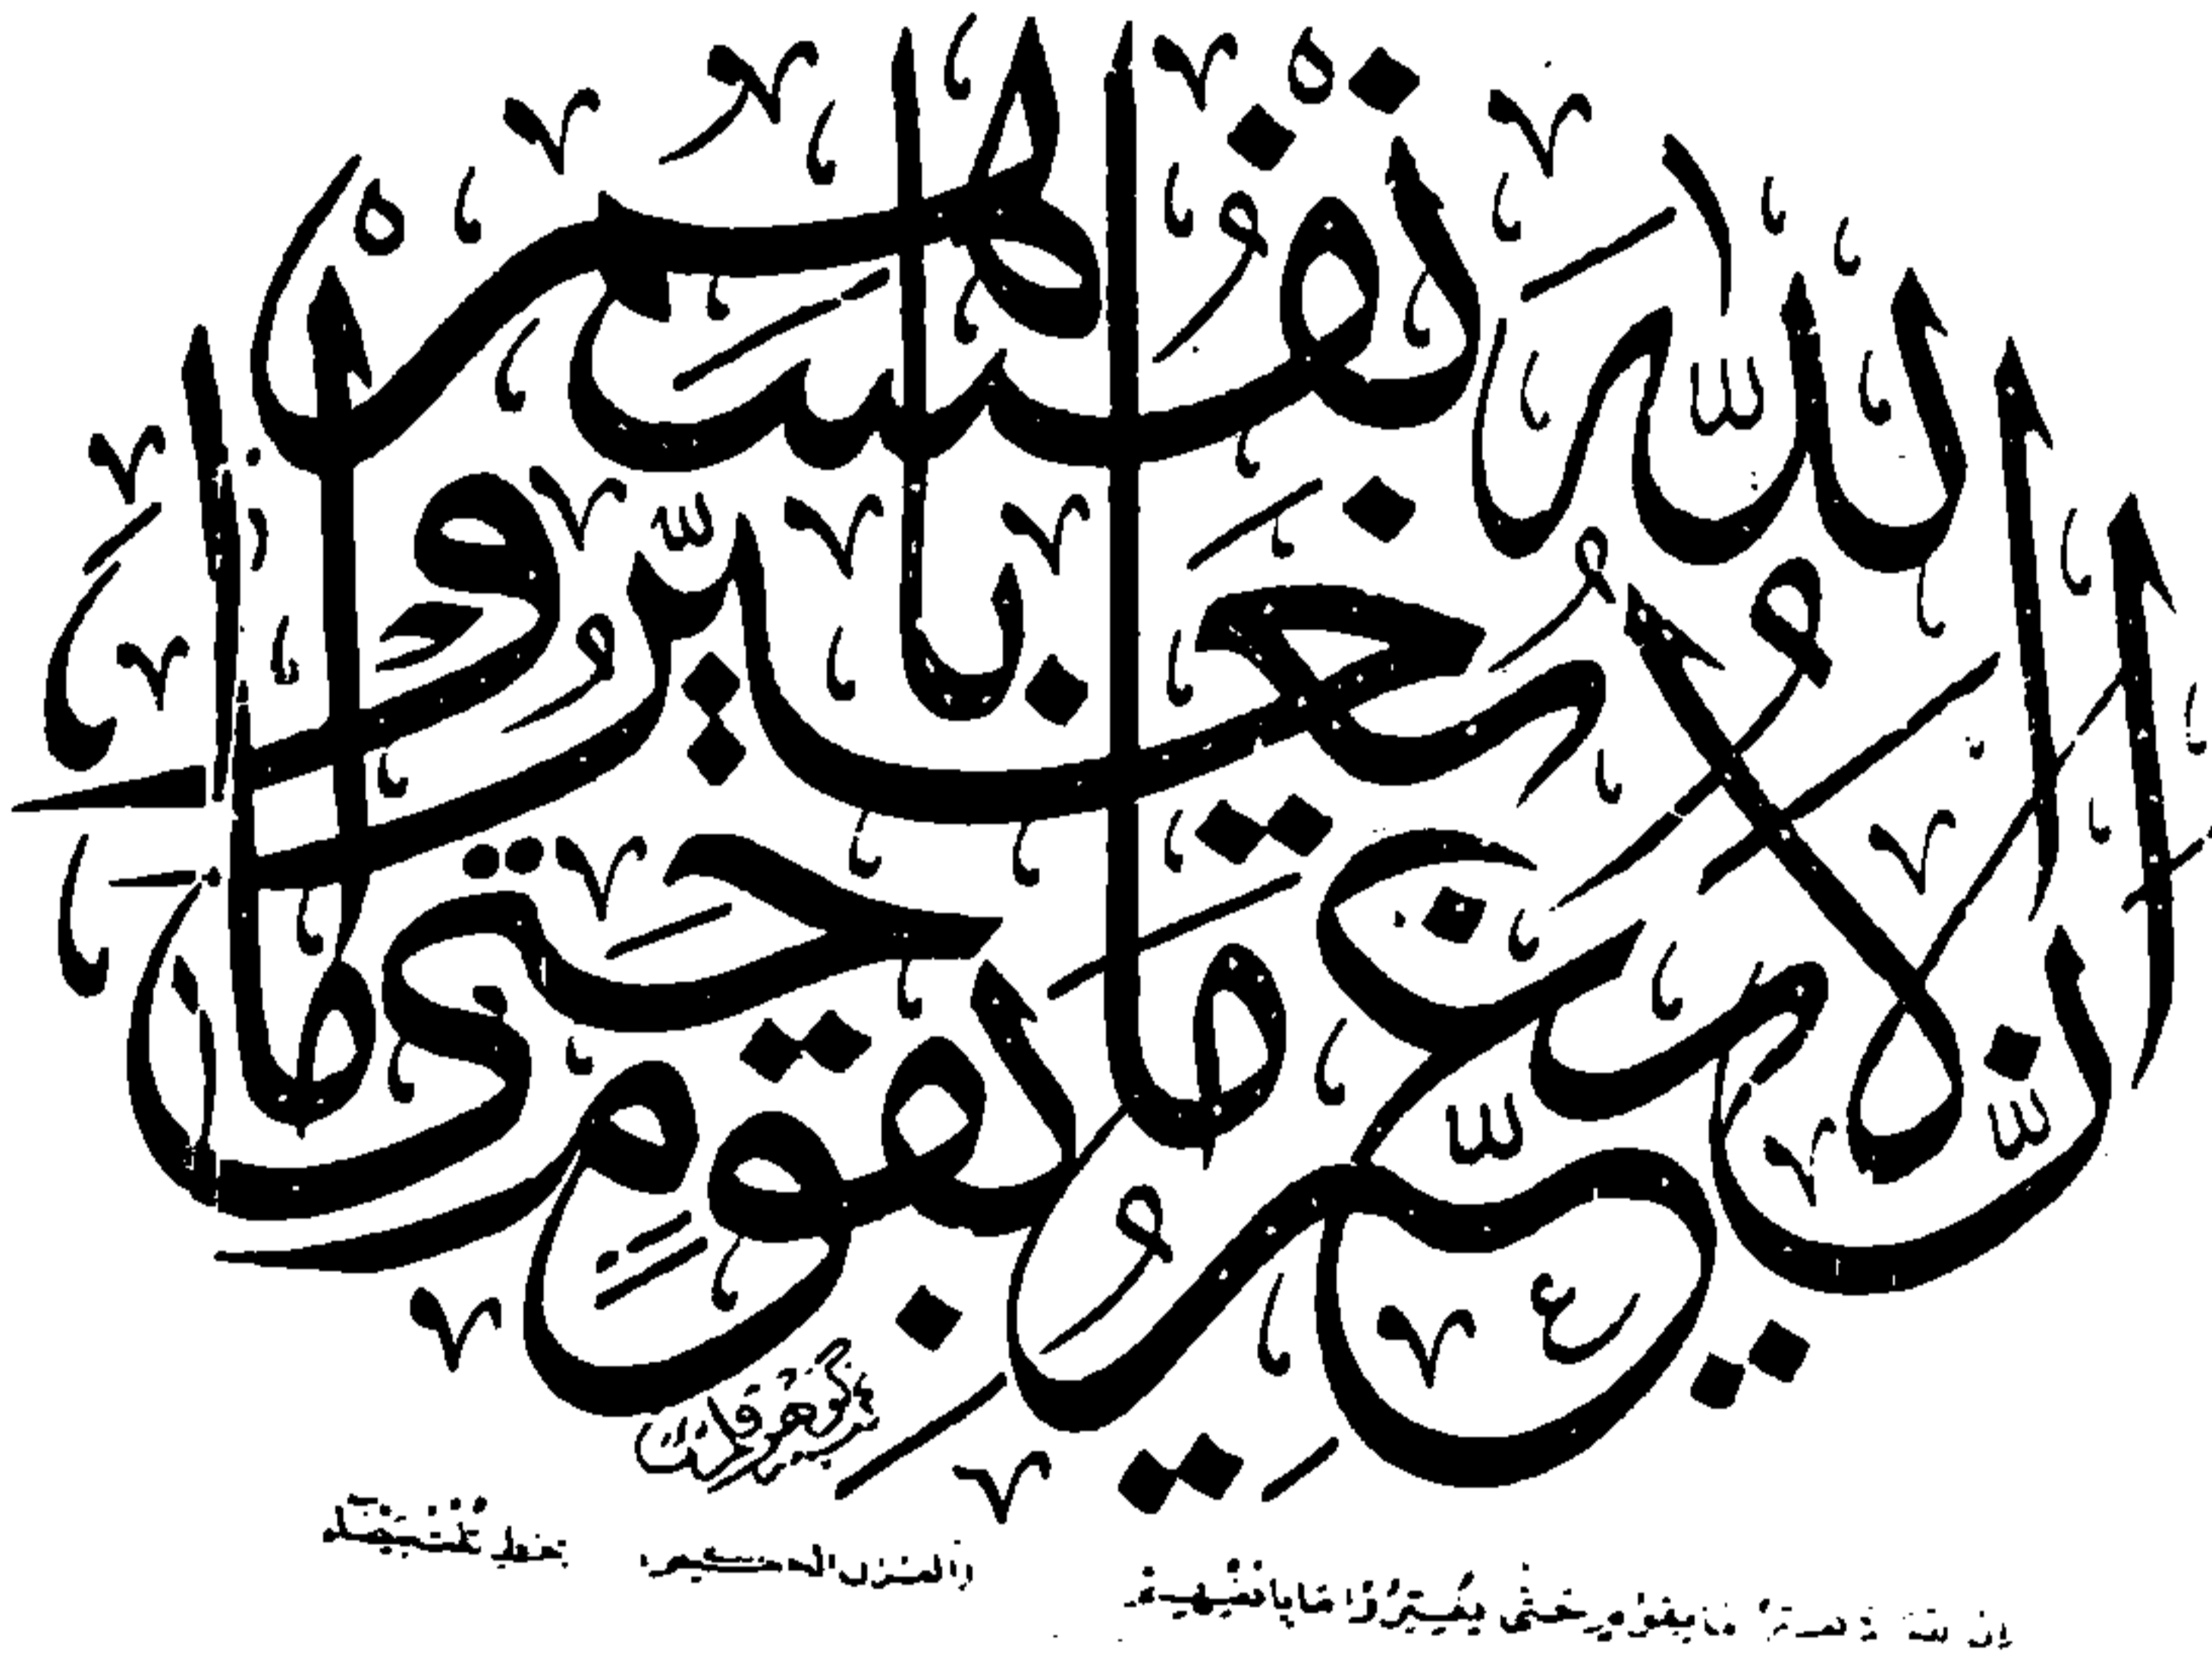 إِنَّ اللّٰهَ لَا يُغَيِّرُ مَا بِقَوْمٍ حَتَّىٰ يُغَيِّرُوا مَا بِأَنفُسِهِمْ
إن الله لا يغير ما بقوم حتى يغيروا ما بأنفسهم القرآن الكريم بخط